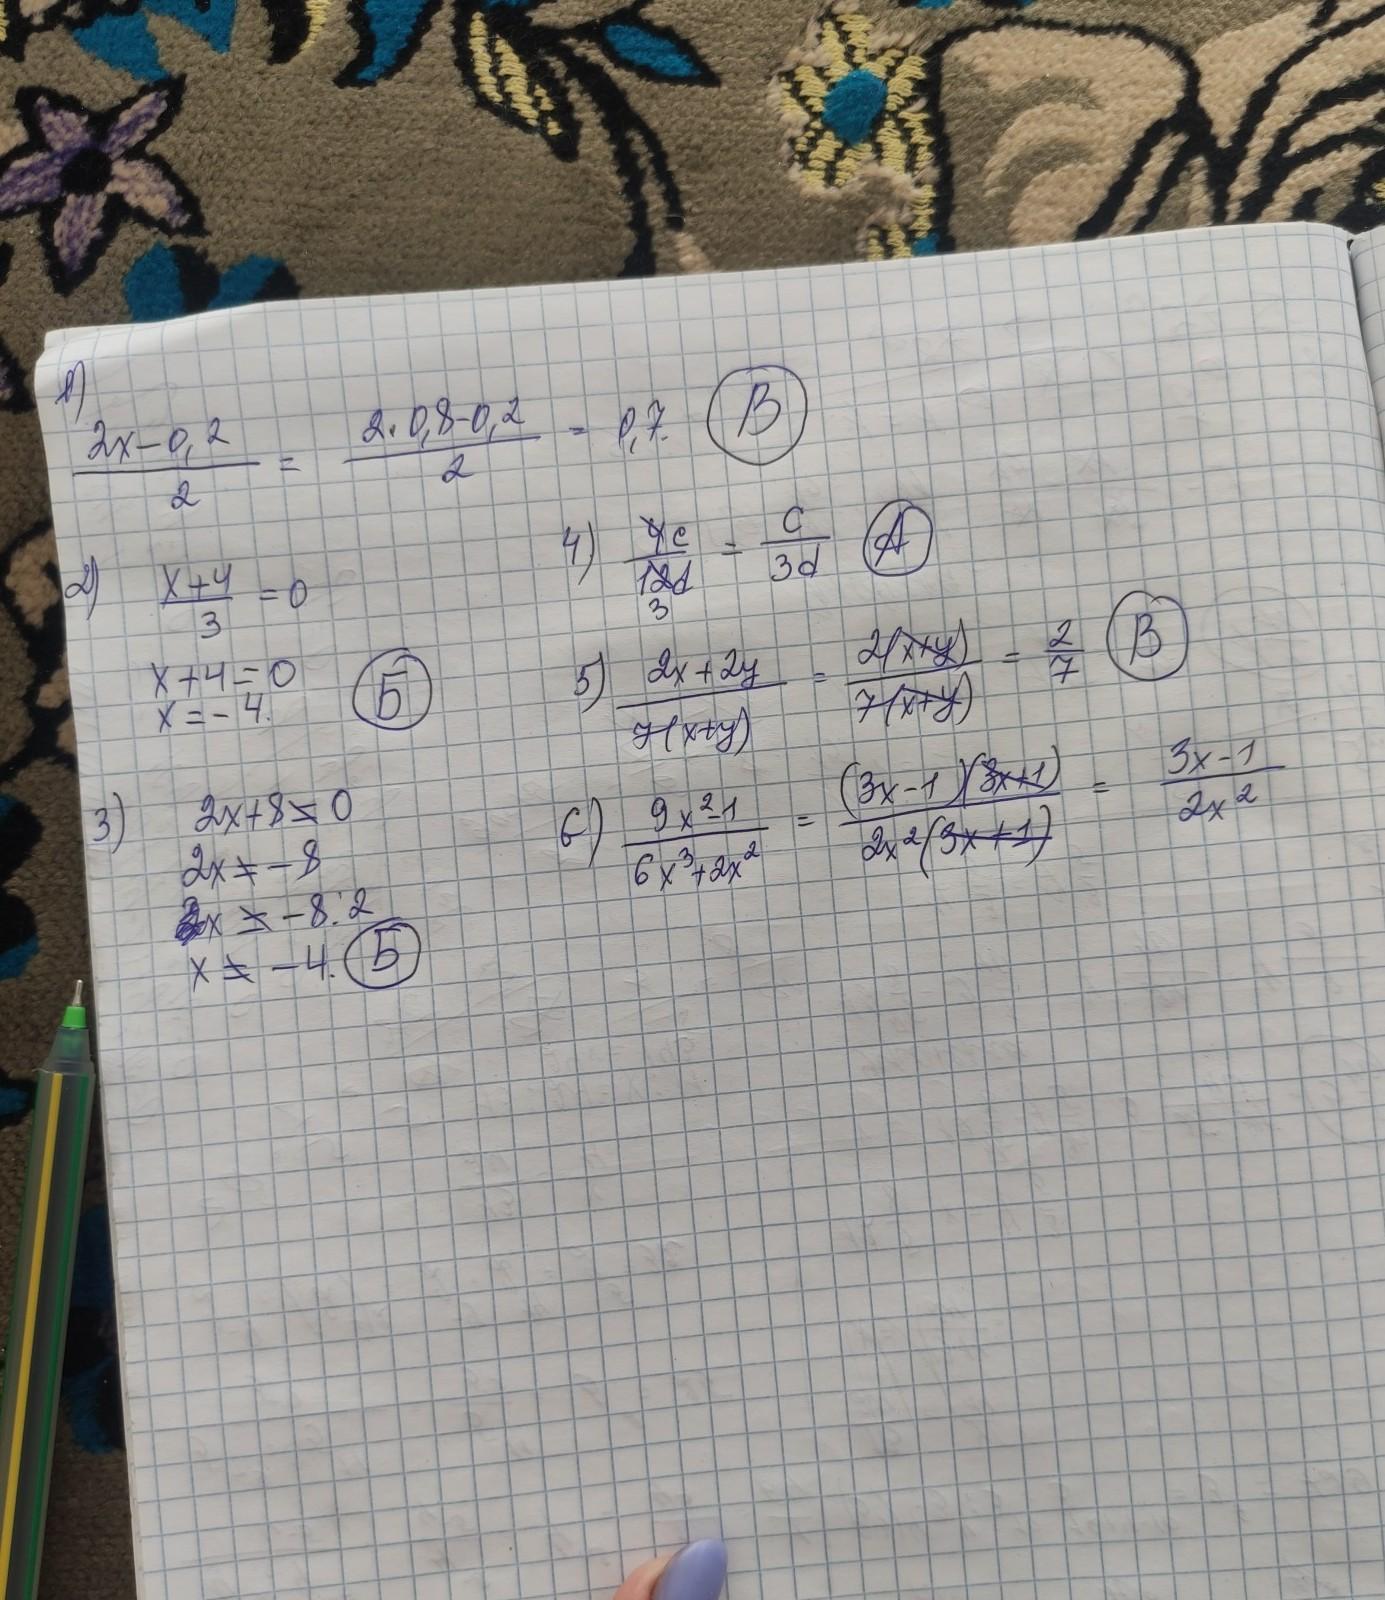 1)
(2x-0,2)/2 = (2·0,8-0,2)/2 = 0,7. В
2) (x+4)/3 = 0
x+4=0
x=-4. Б
3) 2x+8≠0
2x≠-8
x≠-8:2
x≠-4. Б
4) 4c/12d = c/3d А
3
5) (2x+2y)/(7(x+y)) = 2(x+y)/(7(x+y)) = 2/7 В
6) (9x²-1)/(6x³+2x²) = (3x-1)(3x+1)/(2x²(3x+1)) = (3x-1)/(2x²)